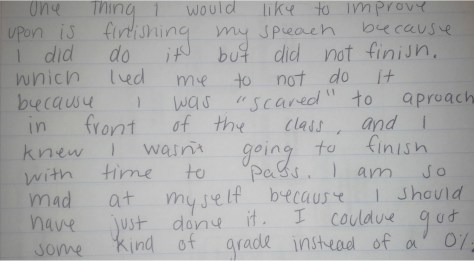 One thing I would like to improve
upon is finishing my speach because
I did do it but did not finish.
which led me to not do it
because I was "scared" to aproach
in front of the class, and I
knew I wasn't going to finish
with time to pass. I am so
mad at myself because I should
have just done it. I couldve got
some kind of grade instead of a 0%